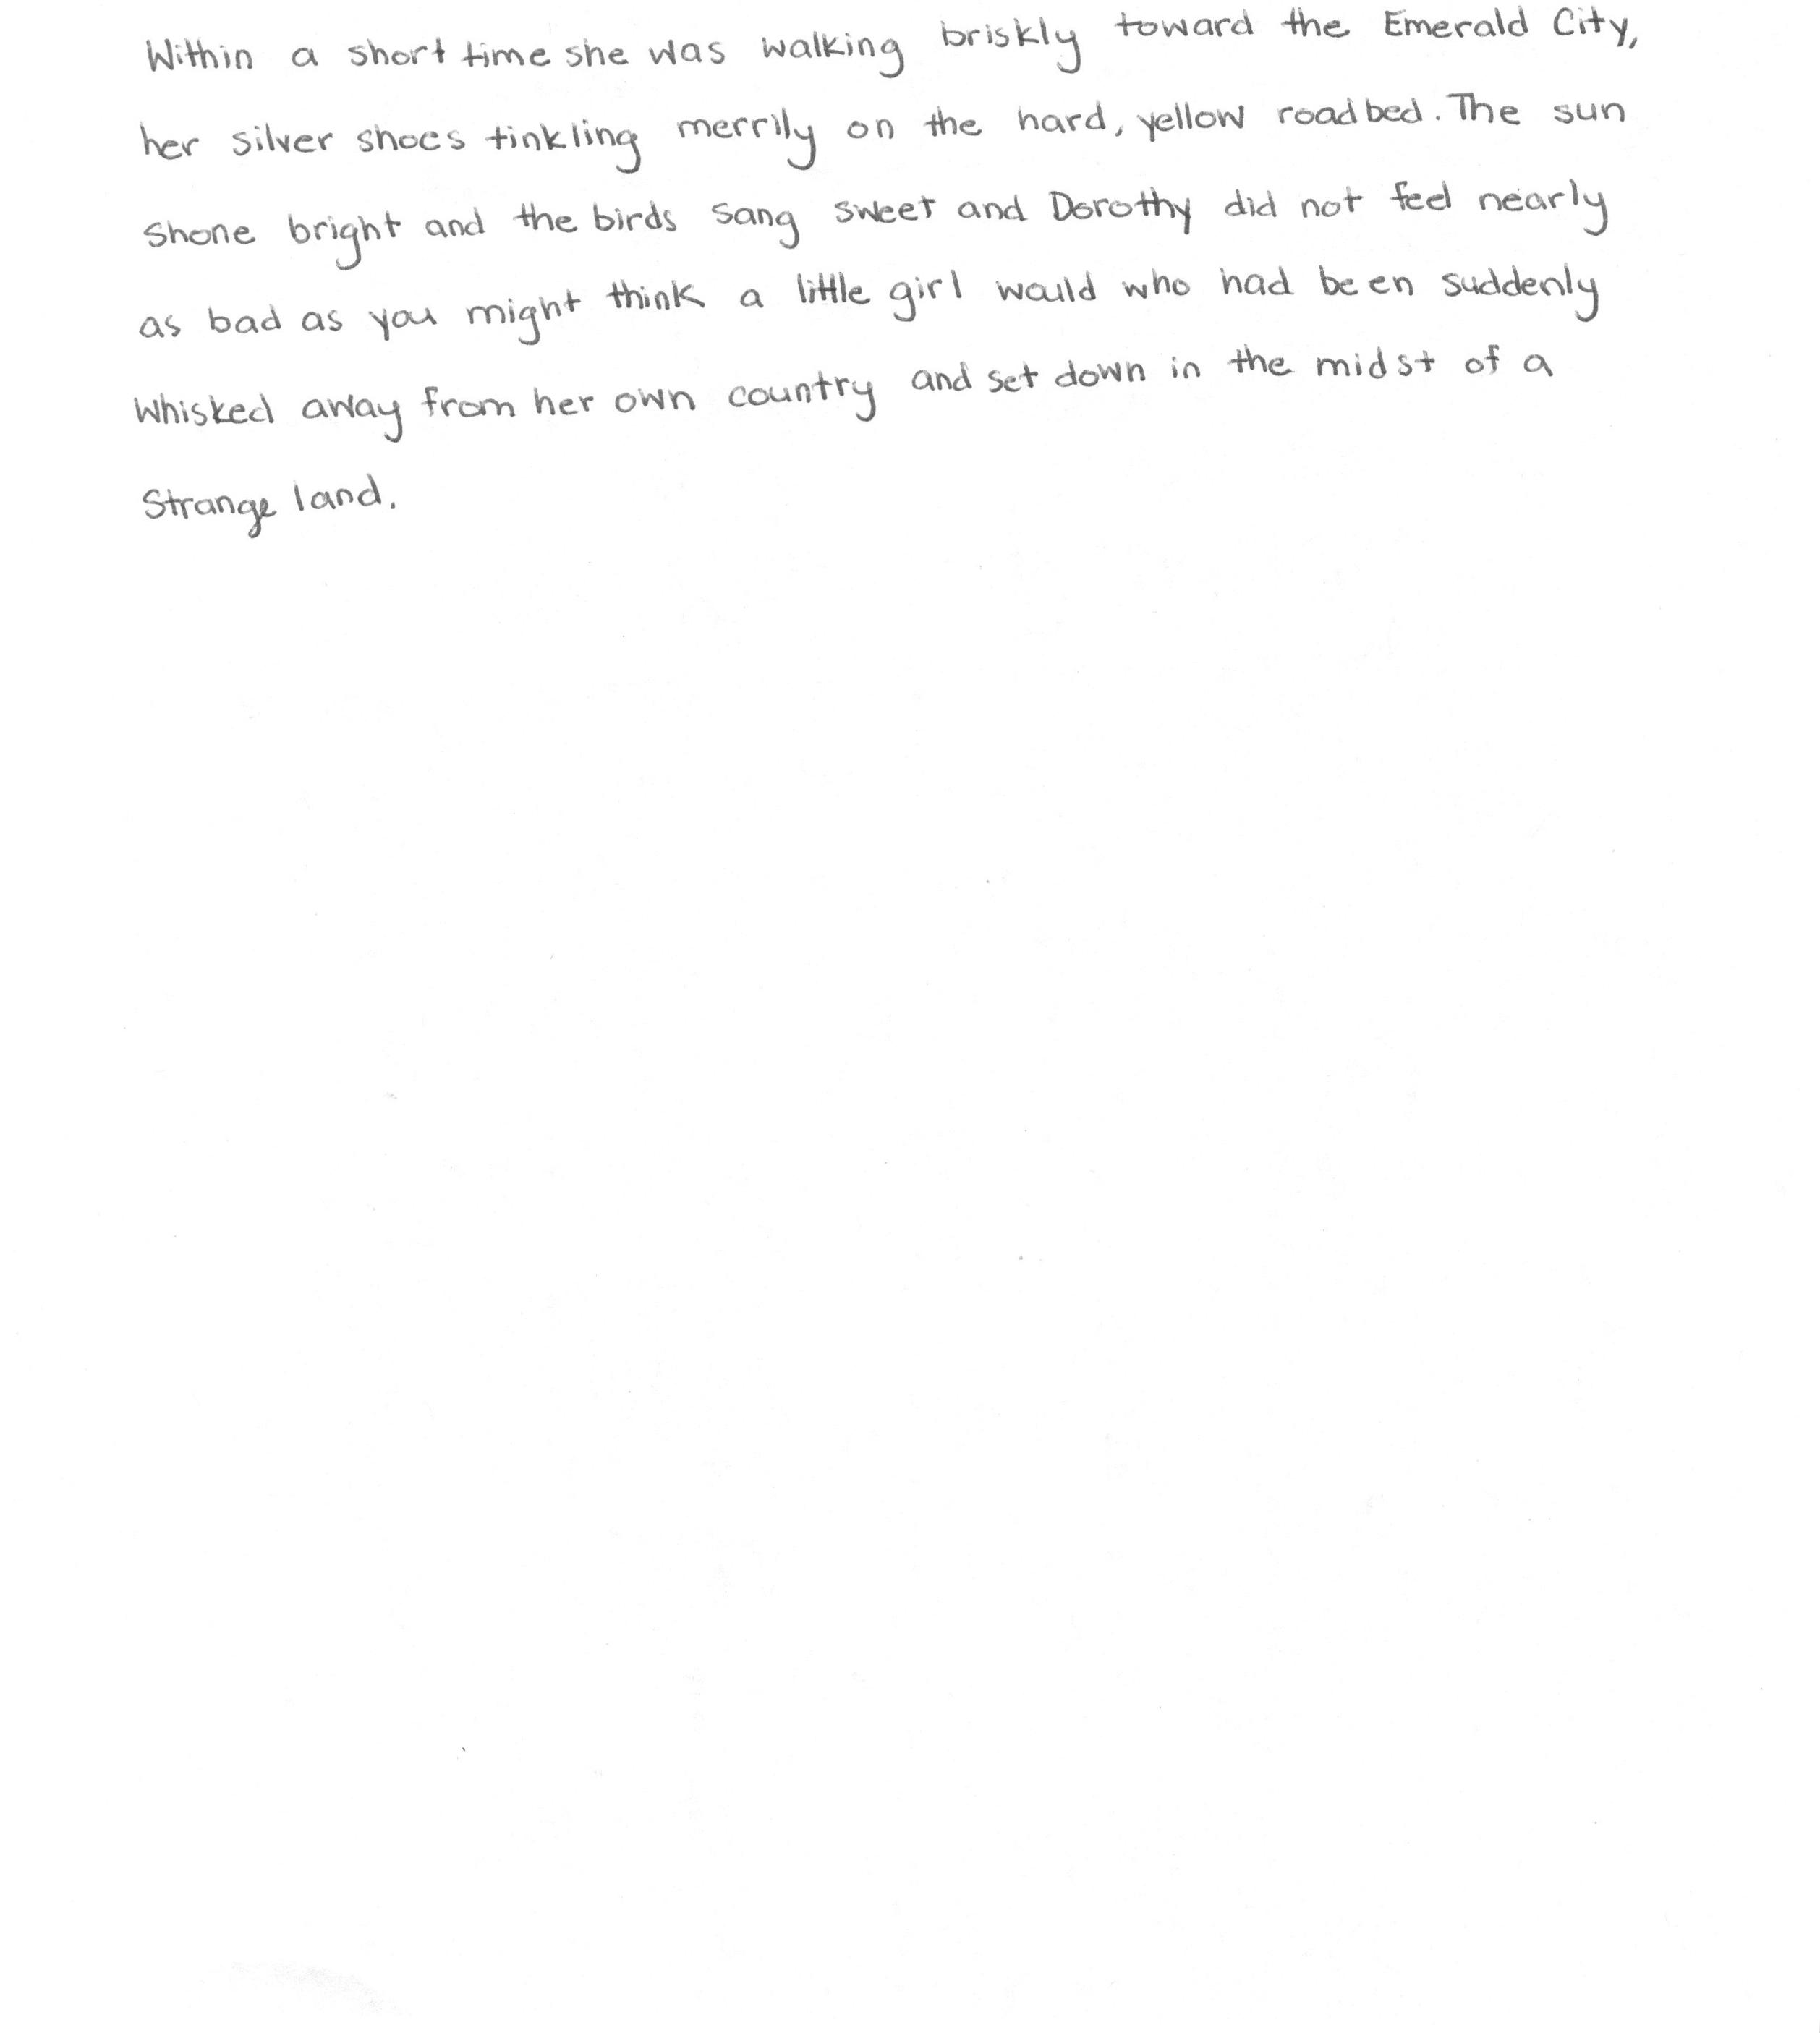 Within a short time she was walking briskly toward the Emerald City,
her silver shoes tinkling merrily on the hard, yellow roadbed. The sun
shone bright and the birds sang sweet and Dorothy did not feel nearly
as bad as you might think a little girl would who had been suddenly
whisked away from her own country and set down in the midst of a
strange land.